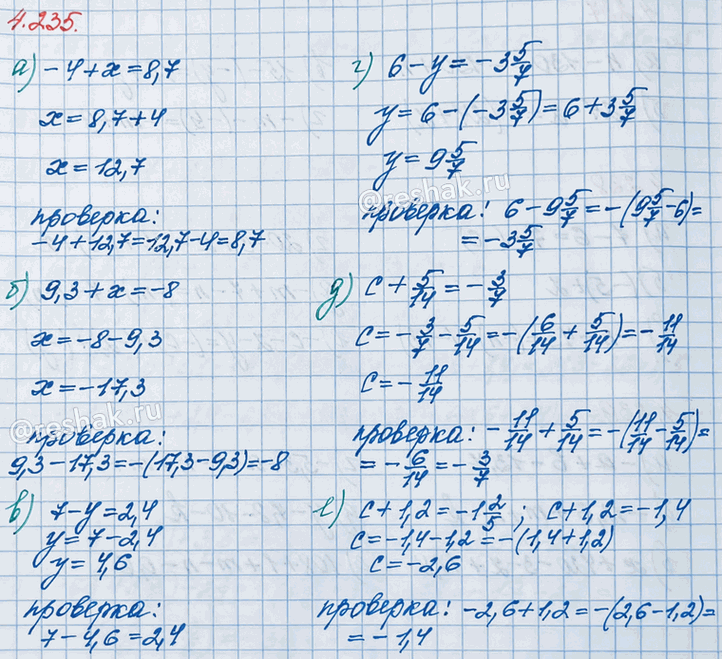 4.235.
а) -4+x=8,7
x=8,7+4
x=12,7
проверка:
-4+12,7=12,7-4=8,7
б) 9,3+x=-8
x=-8-9,3
x=-17,3
проверка:
9,3-17,3=-(17,3-9,3)=-8
в) 7-y=2,4
y=7-2,4
y=4,6
проверка:
7-4,6=2,4
г) 6-y=-3 5/7
y=6-(-3 5/7)=6+3 5/7
y=9 5/7
проверка: 6-9 5/7=-(9 5/7-6)=
=-3 5/7
д) c+5/14=-3/7
c=-3/7-5/14=-(6/14+5/14)=-11/14
c=-11/14
проверка: -11/14+5/14=-(11/14-5/14)=
=-6/14=-3/7
е) c+1,2=-1 2/5; c+1,2=-1,4
c=-1,4-1,2=-(1,4+1,2)
c=-2,6
проверка: -2,6+1,2=-(2,6-1,2)=
=-1,4
@reshak.ru
@reshak.ru